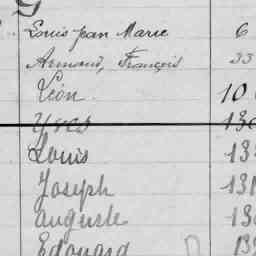 G
Louis Jean Marie 6
Armand, François 33
Léon 10
Yves 130
Louis 13
Joseph 131
Auguste 13
Edouard 13